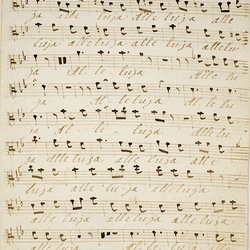 ja alle luja Alle luja
luja alleluja alle alleluu
ja Al le luja Alle lu
ja Al le luja Al le lu
ja Al le luja Alle lu
ja alleluja alleluja alle
luja alle lu ja alleluja
alle luja alleluja alleluja
luja al le luja